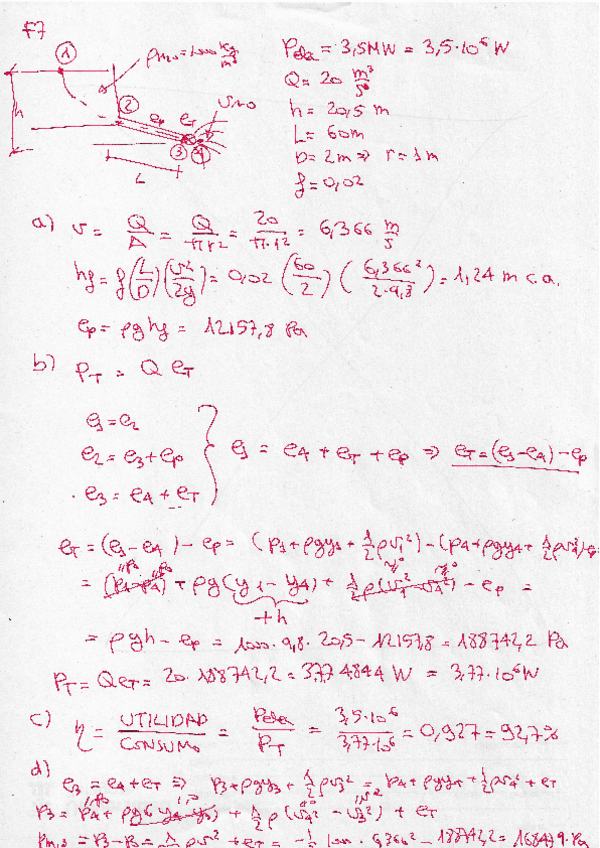 F7
1
ρH2O = 1000 kg/m³
h
2
ep
eT
v≈0
3
4
L
Pelec = 3,5MW = 3,5·10⁶ W
Q = 20 m³/s
h = 20,5 m
L = 60m
D = 2m ⇒ r = 1m
f = 0,02
a) v = Q/A = Q/πr² = 20/π·1² = 6,366 m/s
hf = f(L/D)(v²/2g) = 0,02 (60/2) (6,366²/2·9,8) = 1,24 m c.a.
ep = ρghf = 12157,8 Pa
b) PT = Q eT
e1 = e2
e2 = e3 + ep
e3 = e4 + eT
e1 = e4 + eT + ep ⇒ eT = (e1-e4) - ep
eT = (e1-e4) - ep = (p1 + ρgy1 + ½ρv1²) - (p4 + ρgy4 + ½ρv4²) - e
= (p1-p4) + ρg(y1-y4) + ½ρ(v1²-v4²) - ep =
+h
= ρgh - ep = 1000·9,8·20,5 - 12157,8 = 188742,2 Pa
PT = Q eT = 20·188742,2 = 3774844 W = 3,77·10⁶ W
c) η = UTILIDAD/CONSUMO = Pelec/PT = 3,5·10⁶/3,77·10⁶ = 0,927 = 92,7%
d) e3 = e4 + eT ⇒ p3 + ρgy3 + ½ρv3² = p4 + ρgy4 + ½ρv4² + eT
p3 = p4 + ρg(y4-y3) + ½ρ(v4²-v3²) + eT